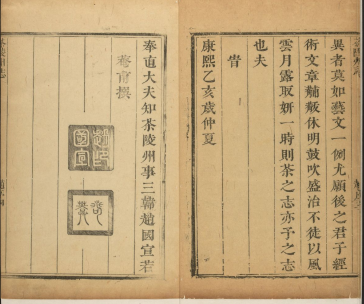 異者莫如藝文一例尤願後之君子經
術文章黼黻休明鼓吹盛治不徒以風
雲月露取妍一時則茶之志亦予之志
也夫
旹
康熙乙亥歲仲夏
奉直大夫知茶陵州事三韓趙國宣若
菴甫撰
趙國宣印